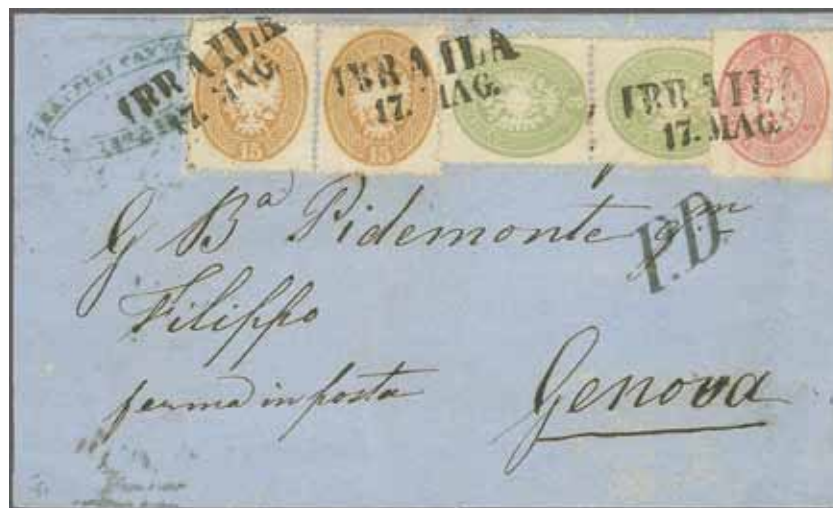 IBRAILA
17. MAG.
IBRAILA
17. MAG.
IBRAILA
17. MAG.
15
15
P.D.
G Bª Pidemonte qm
Filippo
ferma in posta
Genova